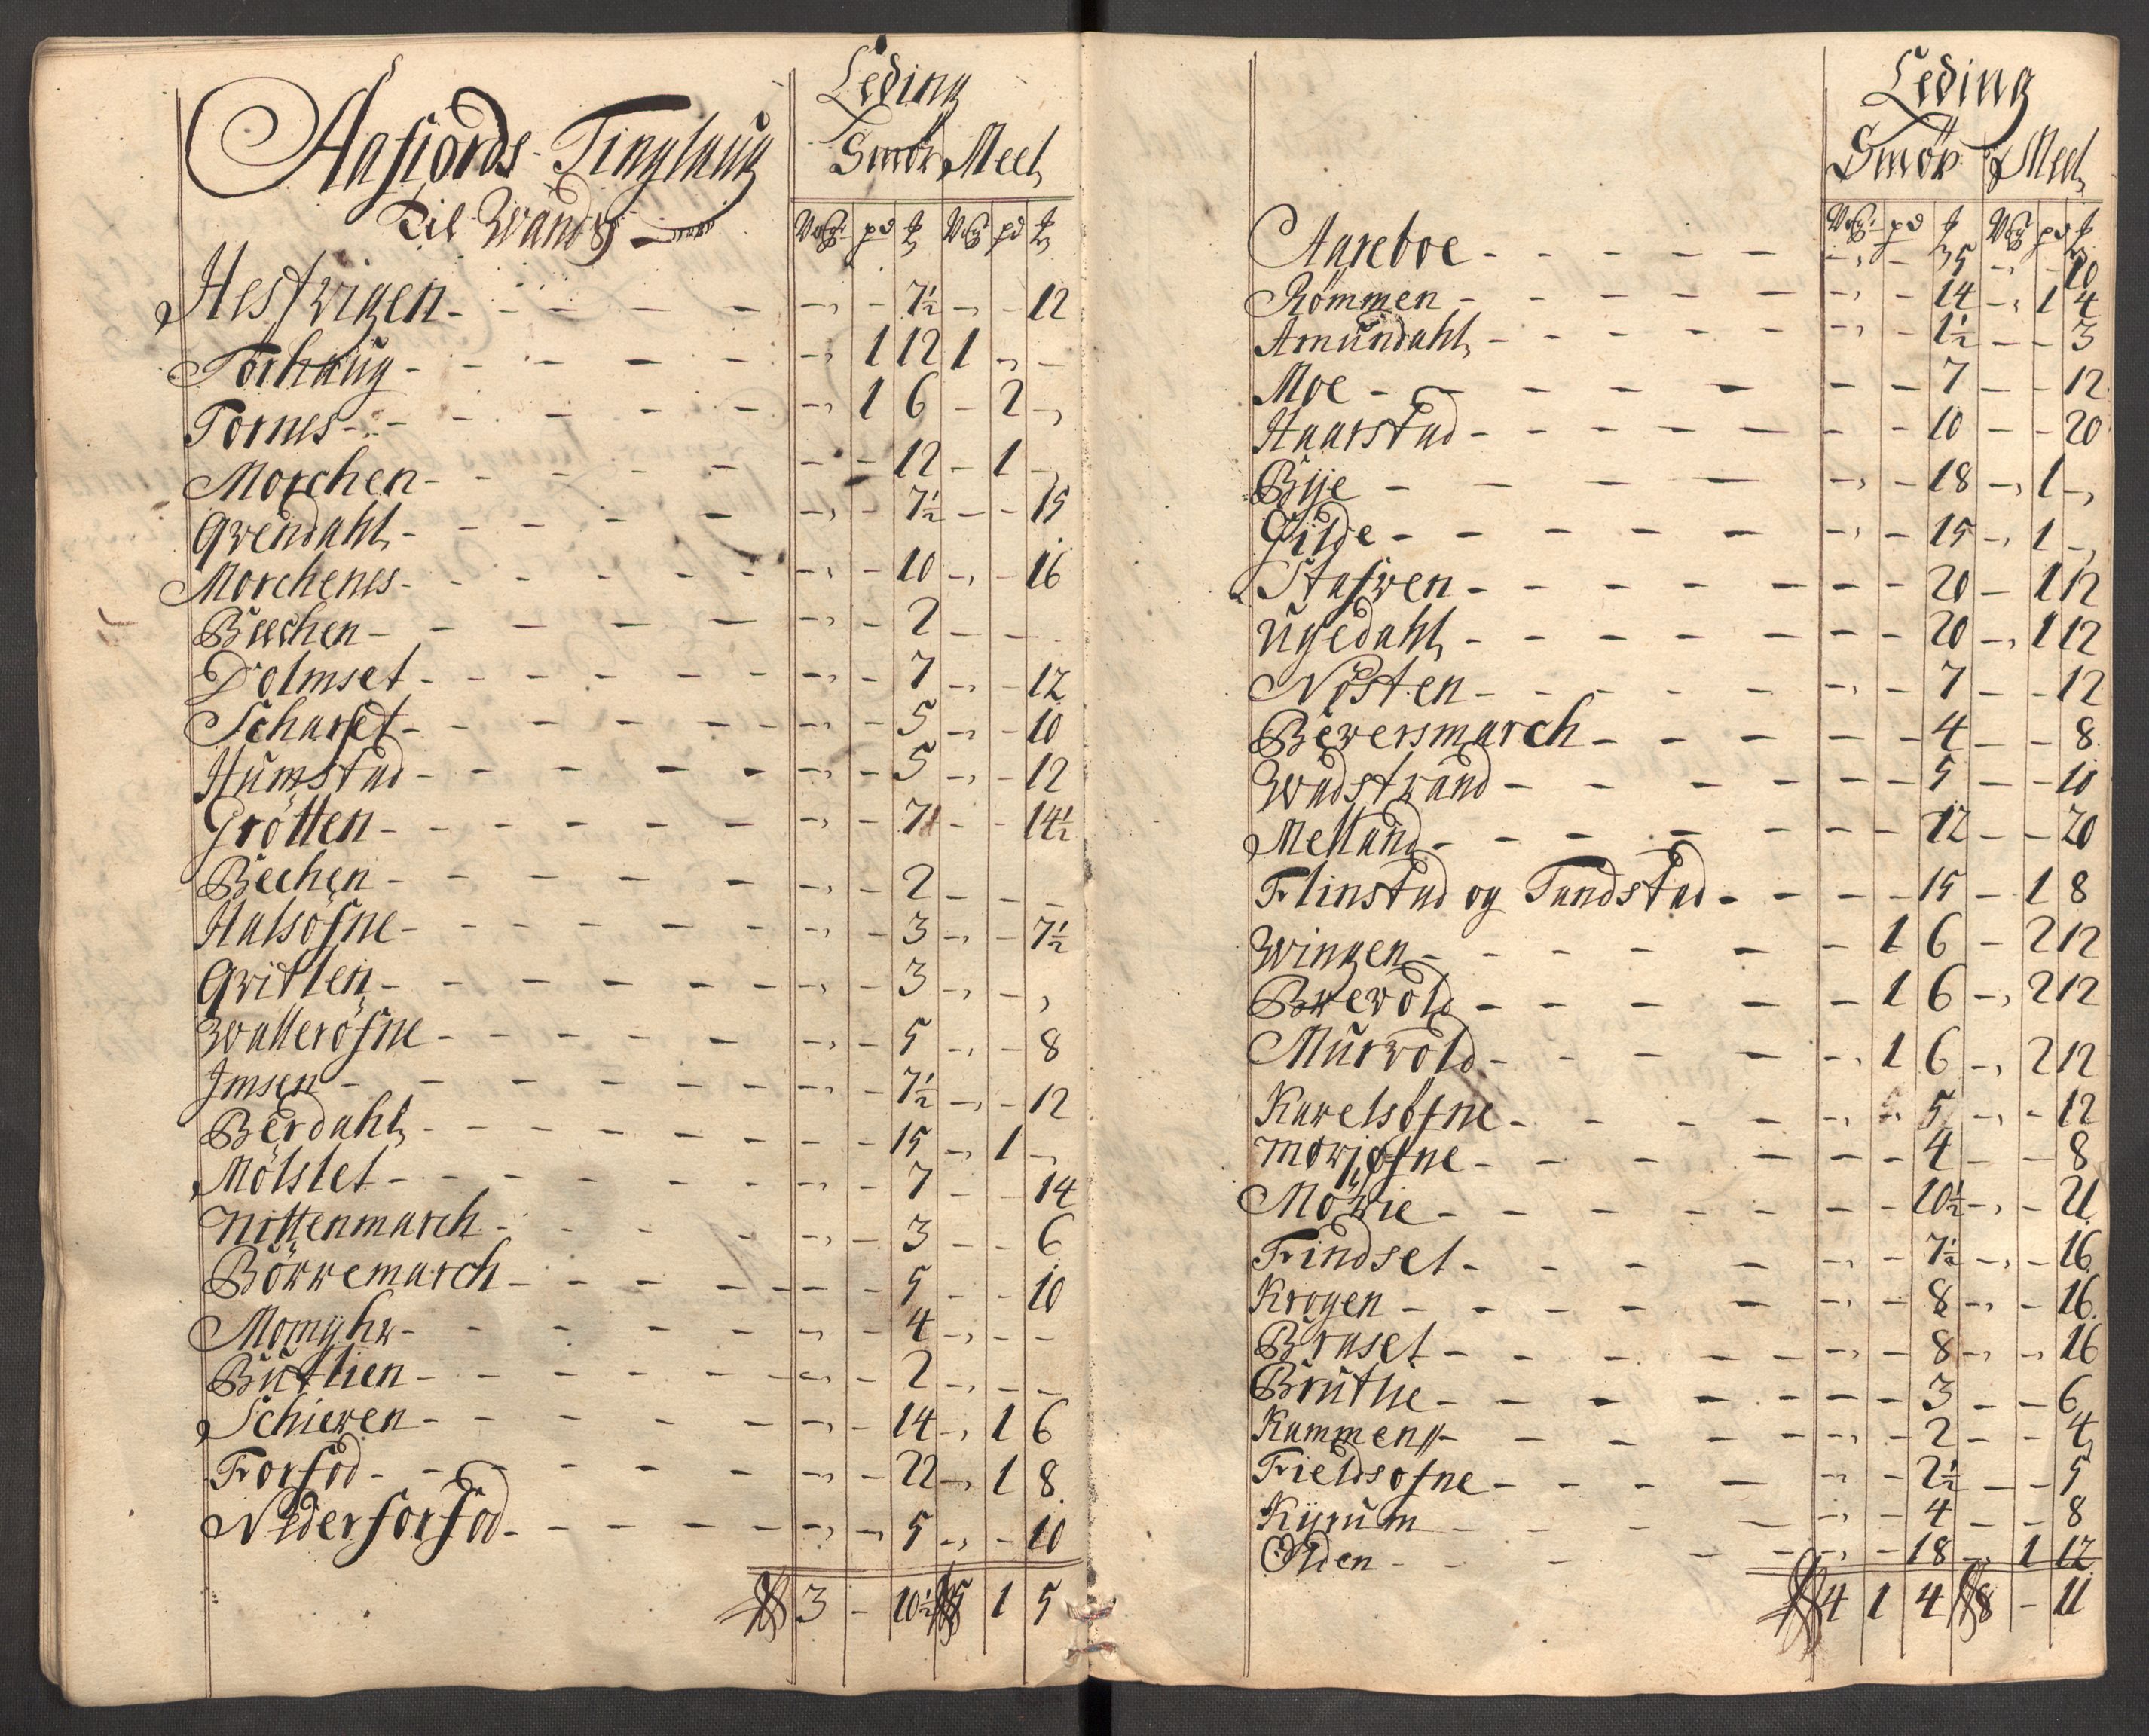 Leding
Aafiords Tinglaug Smør Meel
Til Wands Vog pd ℔ Vog pd ℔
Hestvigen - - - 7½ - - 12
Torhaug - - 1 12 1 - -
Tornes - - 1 6 - 2 -
Morchen - - - 12 - 1 -
Qvendahl - - - 7½ - - 15
Morchenes - - - 10 - - 16
Buechen - - - 2 - -
Dolmset - - - 7 - - 12
Scharset - - - 5 - - 10
Humstad - - - 5 - - 12
Grøtten - - - 7 - - 14½
Bechen - - - 2 - - -
Halsøfne - - - 3 - - 7½
Qvitlen - - - 3 - - -
Walleröfne - - - 5 - - 8
Imsen - - - 7½ - - 12
Berdahl - - - 15 - 1 -
Mølslet - - - 7 - - 14
Nittenmarch - - - 3 - - 6
Börremarch - - - 5 - - 10
Momyhr - - - 4 - - -
Butlien - - - 2 - - -
Schieren - - - 14 - 1 6
Forfod - - - 22 - 1 8
Nederforfod - - - 5 - - 10
3 - 10½ 5 1 5
Leding
Smør Meel
Vog pd ℔ Vog pd ℔
Aareboe - - - 35 - - 20
Rømmen - - - 14 - 1 4
Amundahl - - - 1½ - - 3
Moe - - - 7 - - 12
Haarstad - - - 10 - - 20
Bye - - - 18 - 1 -
Gilde - - - 15 - 1 -
Stafwen - - - 20 - 1 12
Ugedahl - - - 20 - 1 12
Nøsten - - - 7 - - 12
Bewersmarch - - - 4 - - 8
Wadstrand - - - 5 - - 10
Melland - - - 12 - - 20
Flinstad og Tundstad - - - 15 - 1 8
Wingen - - 1 6 - 2 12
Brevold - - 1 6 - 2 12
Murvold - - 1 6 - 2 12
Karelsøfne - - - 5 - - 12
Moriøfne - - - 4 - - 8
Møhrie - - - 10½ - - 21
Frindset - - - 7½ - - 16
Krogen - - - 8 - - 16
Braset - - - 8 - - 16
Bruthe - - - 3 - - 6
Kammen - - - 2 - - 4
Fieldsofne - - - 2½ - - 5
Kyrum - - - 4 - - 8
Olden - - - 18 - 1 12
4 1 4 8 - 11